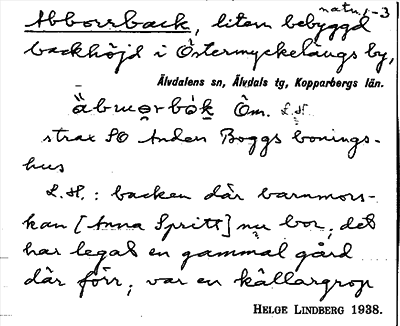 natn. 1-3
Abborrback, liten bebyggd
backhöjd i Östermyckeläugs by,
Älvdalens sn, Älvdals tg, Kopparbergs län.
Öm. L.H.
strax SO Anden Boggs bonings-
hus
L.H.: backen där barnmors-
kan [Anna Spritt] nu bor; det
har legat en gammal gård
där förr; var en källargrop
HELGE LINDBERG 1938.